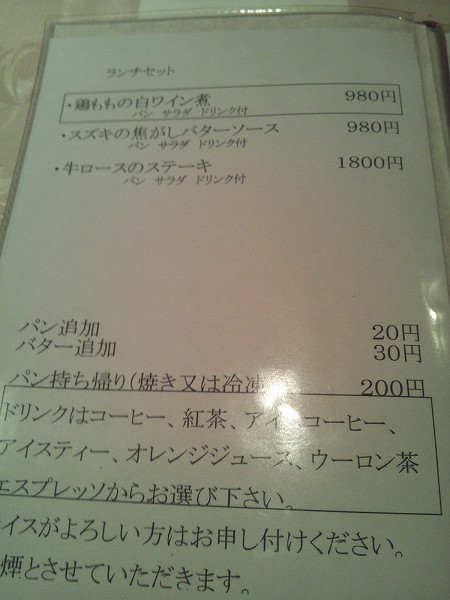 ランチセット
・鶏ももの白ワイン煮 980円
パン サラダ ドリンク付
・スズキの焦がしバターソース 980円
パン サラダ ドリンク付
・牛ロースのステーキ 1800円
パン サラダ ドリンク付
パン追加 20円
バター追加 30円
パン持ち帰り(焼き又は冷凍 200円
ドリンクはコーヒー、紅茶、アイスコーヒー、
アイスティー、オレンジジュース、ウーロン茶
エスプレッソからお選び下さい。
イスがよろしい方はお申し付けください。
煙とさせていただきます。